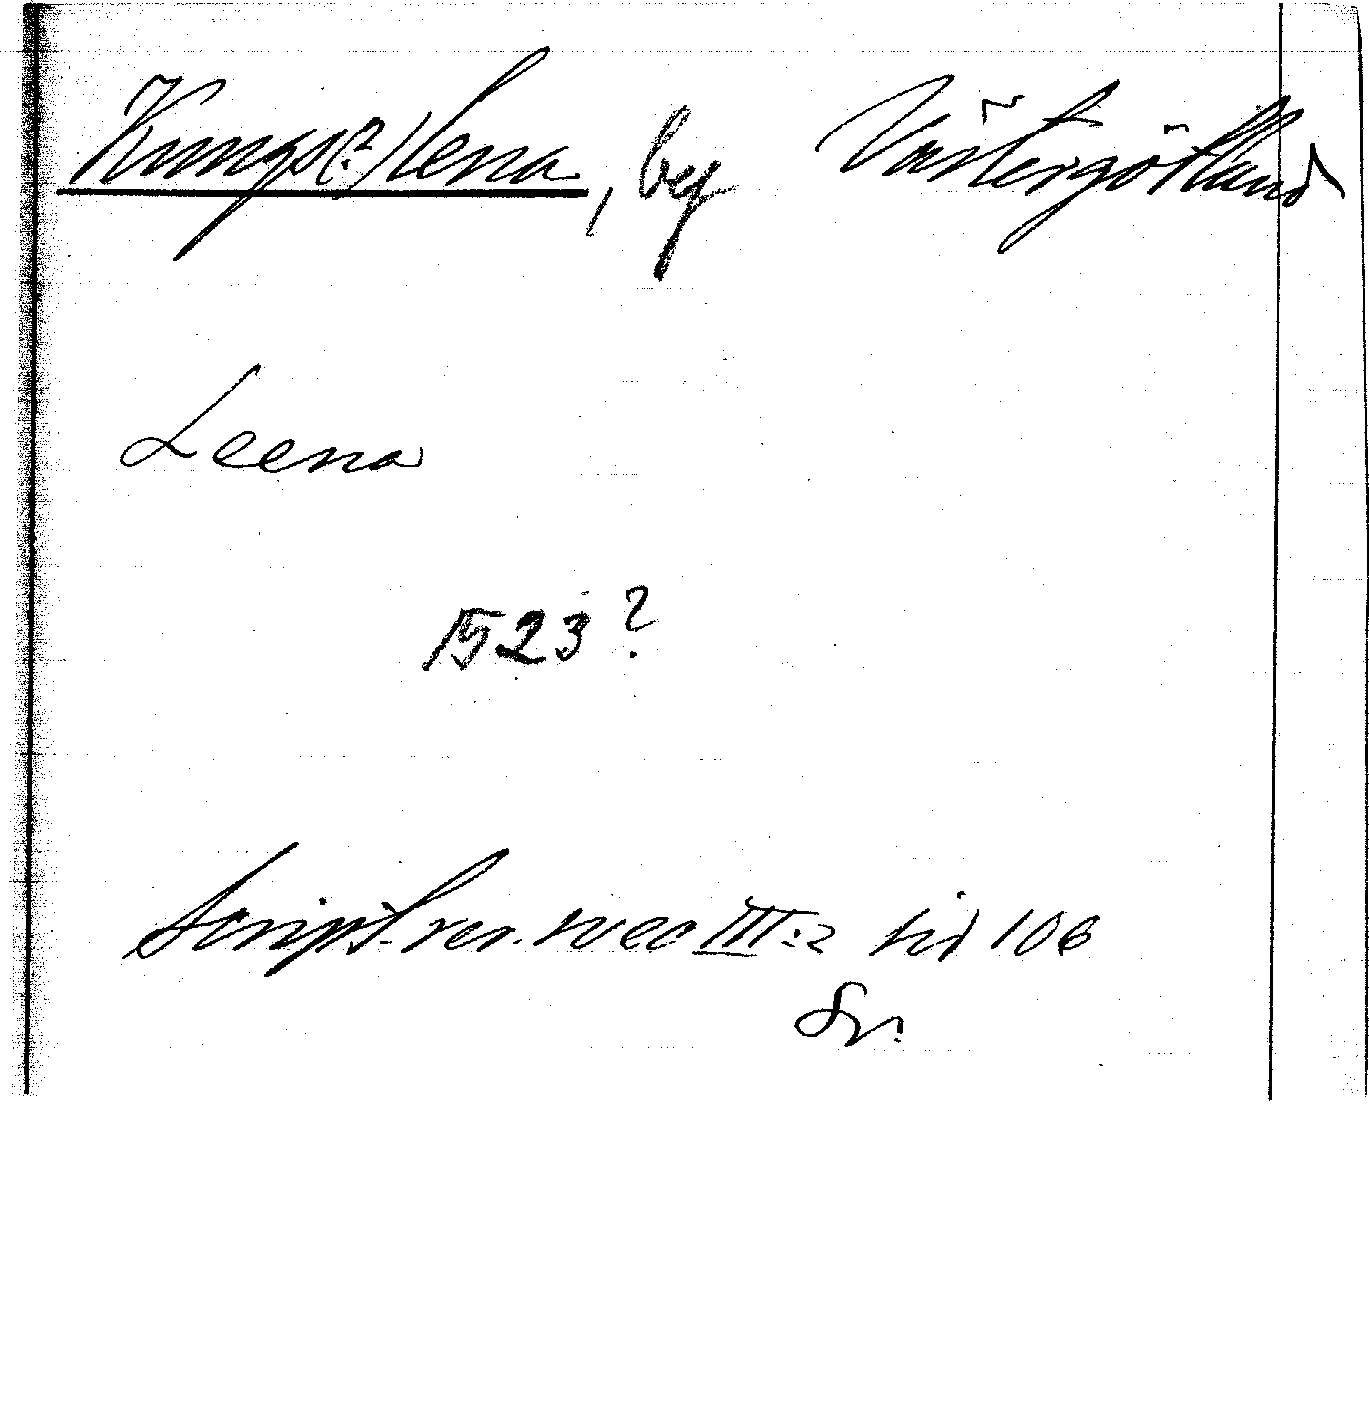 Kungs(?)lena, by Västergötland
Leena
1523?
Script. rer. svec III:2 sid 106